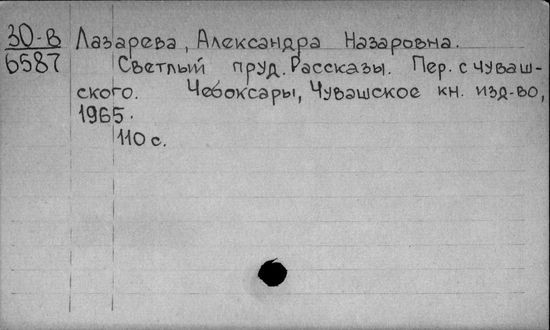 30-В Лазарева, Александра Назаровна.
6587 Светлый пруд. Рассказы. Пер. с чуваш-
ского. Чебоксары, Чувашское кн. изд-во,
1965.
110 с.